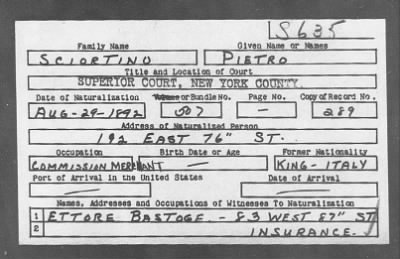 S635
Family Name Given Name or Names
SCIORTINO PIETRO
Title and Location of Court
SUPERIOR COURT, NEW YORK COUNTY.
Date of Naturalization Volume or Bundle No. Page No. Copy of Record No.
AUG-29-1892 507 — 289
Address of Naturalized Person
192 EAST 76" ST.
Occupation Birth Date or Age Former Nationality
COMMISSION MERCHANT — KING-ITALY
Port of Arrival in the United States Date of Arrival
— —
Names, Addresses and Occupations of Witnesses To Naturalization
1 ETTORE BASTOGE. - 83 WEST 87" ST
2 INSURANCE.